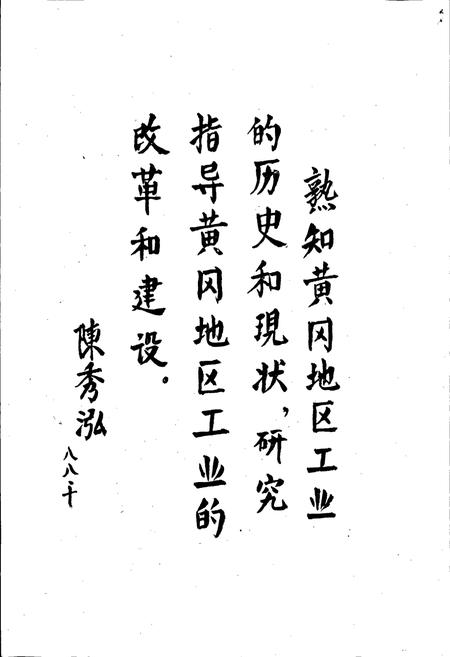 熟知黄冈地区工业
的历史和現状，研究
指导黄冈地区工业的
改革和建设。
陳秀泓
八八、十